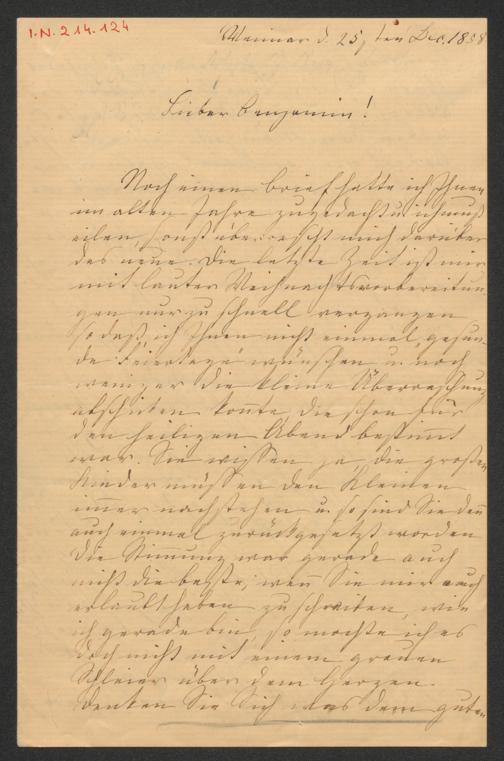 I.N. 214.124
Weimar d. 25ten Dec. 1888
Lieber Benjamin!
Noch einen Brief hatte ich Ihnen
im alten Jahre zugedacht u. ich muß
eilen, sonst überrascht mich darüber
das neue. Die letzte Zeit ist mir
mit lauter Weihnachtsvorbereitun
gen nur zu schnell vergangen,
so daß ich Ihnen nicht einmal „gesun-
de Feiertage“ wünschen u. noch
weniger die kleine Überraschung
abschicken konnte, die schon für
den heiligen Abend bestimmt
war. Sie wissen ja, die großen
Kinder müssen den Kleinen
immer nachstehen u. so sind Sie denn
auch einmal zurückgesetzt worden
Die Stimmung war gerade auch
nicht die beste; wenn Sie mir auch
erlaubt haben zu schreiben, wie
ich gerade bin, so mochte ich es
doch nicht mit einem grauen
Schleier über dem Herzen.
Denken Sie Sich was dem guten